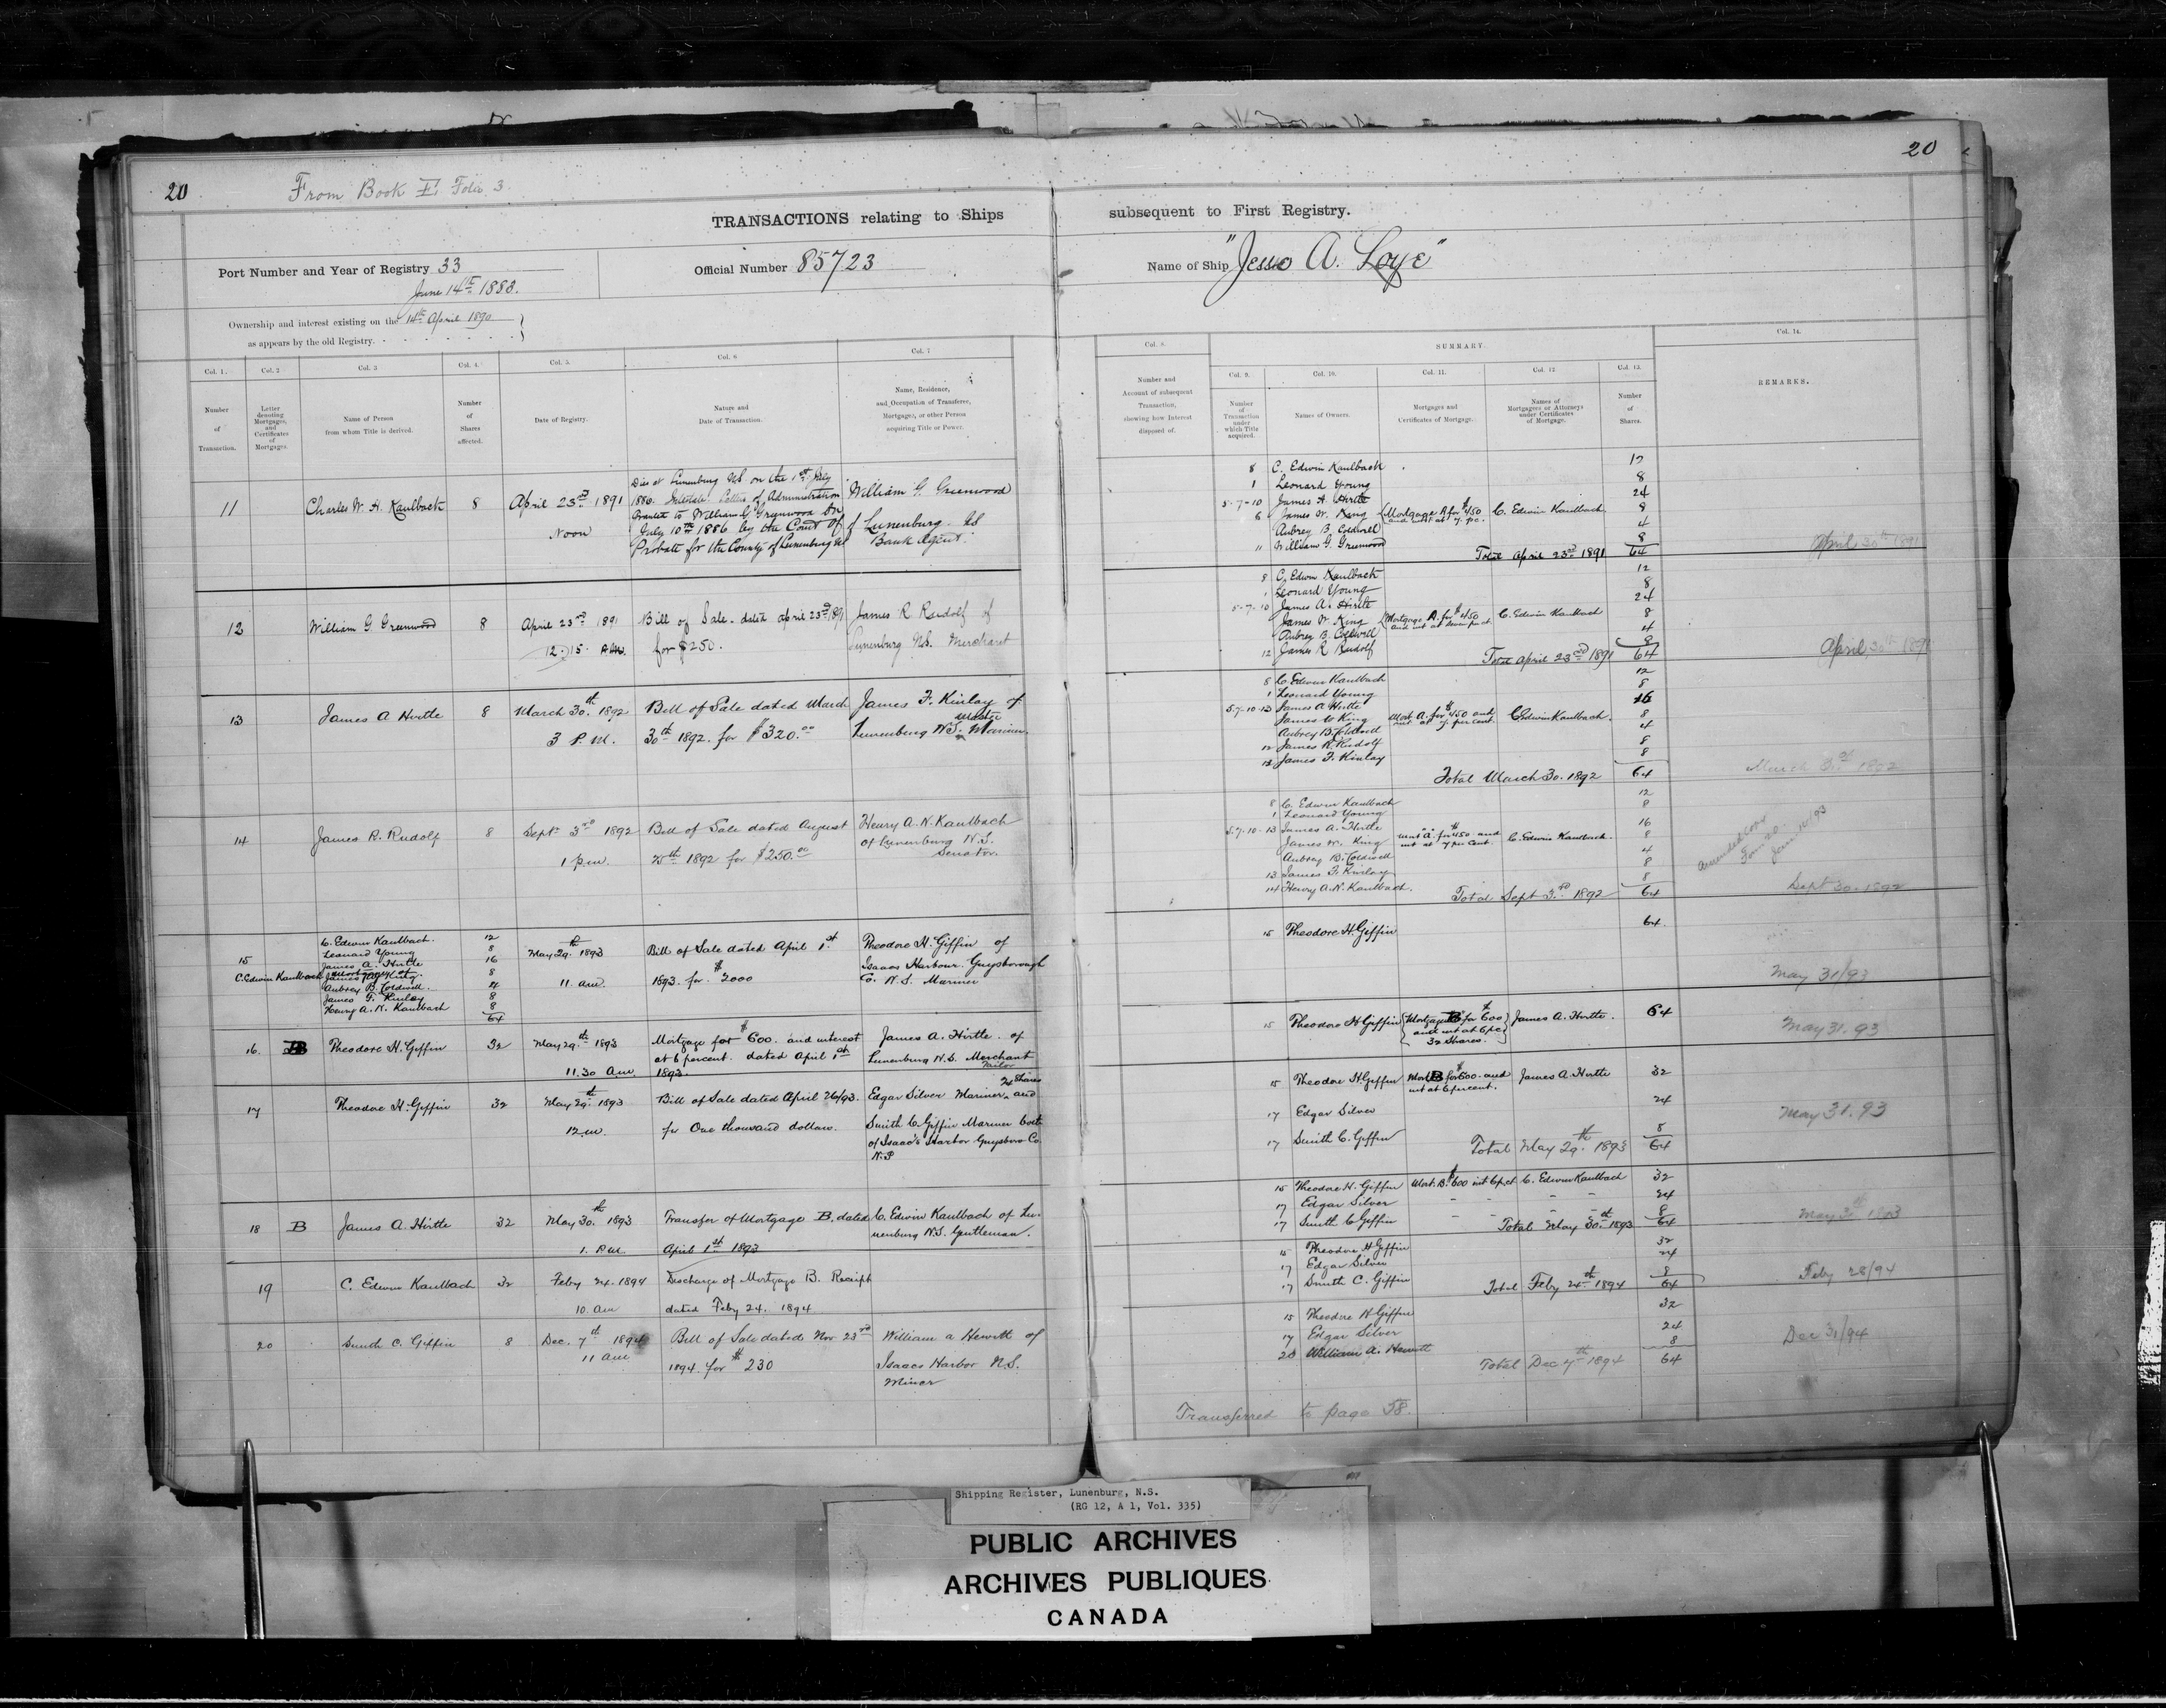 20
From Book E. Folio 3.
20
TRANSACTIONS relating to Ships subsequent to First Registry.
Port Number and Year of Registry 33
June 14th 1883.
Official Number 85723
Name of Ship "Jesse A. Loye"
Ownership and interest existing on the 14th April 1890
as appears by the old Registry.
Col. 1. Col. 2 Col. 3 Col. 4. Col. 5. Col. 6 Col. 7
Number of Transaction.
Letter denoting Mortgages, and Certificates of Mortgages.
Name of Person from whom Title is derived.
Number of Shares affected.
Date of Registry.
Nature and Date of Transaction.
Name, Residence, and Occupation of Transferee, Mortgagee, or other Person acquiring Title or Power.
11 Charles W. H. Kaulback 8 April 23rd 1891
Noon
Died at Lunenburg NS. on the 1st July
1886. Intestate. Letters of Administration
Granted to William G. Greenwood on
July 10th 1886 by the Court of
Probate for the County of Lunenburg NS
William G. Greenwood
of Lunenburg. NS
Bank Agent.
12 William G. Greenwood 8 April 23rd 1891
12.15
Bill of Sale. dated april 23rd 1891
for $250.
James R Rudolf of
Lunenburg NS. Merchant
13 James A Hirtle 8 March 30th 1892
3 P.M.
Bill of Sale dated March
30th 1892. for $320.00
James F. Kinlay of
Master
Lunenburg N.S. Mariner.
14 James R. Rudolf 8 Sept. 3rd 1892
1 p.m.
Bill of Sale dated August
25th 1892 for $250.00
Henry A. N. Kaulbach
of Lunenburg N.S.
Senator.
15
C. Edwin Kaulbach. 12
Leonard Young 8
James A. Hirtle 16
C. Edwin Kaulback Mortgagee of.
James W. King. 8
Aubrey B. Coldwell. 4
James F. Kinlay 8
Henry A. N. Kaulbach 8
64
May 29th 1893
11. am.
Bill of Sale dated April 1st
1893. for $2000
Theodore H. Giffin of
Isaacs Harbour. Guysborough
Co. N.S. Mariner
16. B Theodore H. Giffin 32 May 29th 1893
11.30 a.m.
Mortgage for $600. and interest
at 6 percent. dated April 1st
1893.
James A. Hirtle. of
Lunenburg N.S. Merchant
Tailor
17 Theodore H. Giffin 32 May 29th 1893
12.m.
Bill of Sale dated April 26/93.
for One thousand dollars.
24 Shares
Edgar Silver Mariner and
Smith C. Giffin Mariner both
of Isaac's Harbor Guysboro Co.
N.S
18 B James A. Hirtle 32 May 30th 1893
1. P.M.
Transfer of Mortgage B. dated
April 1st 1893
C. Edwin Kaulbach of Lu-
nenburg N.S. Gentleman.
19 C. Edwin Kaulbach 32 Feby 24. 1894
10. am
Discharge of Mortgage B. Receipt
dated Feby 24. 1894
20 Smith C. Giffin 8 Dec. 7th 1894
11 am
Bill of Sale dated Nov 23rd
1894. for $230
William A Hewitt of
Isaacs Harbor N.S.
Miner
Col. 8.
Number and Account of subsequent Transaction, showing how Interest disposed of.
SUMMARY.
Col. 9. Col. 10. Col. 11. Col. 12 Col. 13.
Number of Transaction under which Title acquired.
Names of Owners.
Mortgages and Certificates of Mortgage.
Names of Mortgagees or Attorneys under Certificates of Mortgage.
Number of Shares.
Col. 14.
REMARKS.
8 C. Edwin Kaulback 12
1 Leonard Young 8
5-7-10 James A. Hirtle 24
6 James W. King Mortgage A for $450 and int at 7. pc. C. Edwin Kaulbach. 8
Aubrey B. Coldwell 4
11 William G. Greenwood 8
Total April 23rd 1891 64
April 30th 1891
8 C. Edwin Kaulback 12
1 Leonard Young 8
5-7-10 James A. Hirtle 24
James W. King Mortgage A. for $450 and int at seven pr ct. C. Edwin Kaulbach 8
Aubrey B. Coldwell 4
12 James R Rudolf 8
Total april 23rd 1891 64
April 30th 1891
8 C. Edwin Kaulbach 12
1 Leonard Young 8
5.7.10-13 James A Hirtle 16
James W King Mort A. for $450 and int at 7. per cent. C Edwin Kaulbach. 8
Aubrey B. Coldwell 4
12 James R. Rudolf 8
13 James F. Kinlay 8
Total March 30. 1892 64
March 1892
8 C. Edwin Kaulbach 12
1 Leonard Young 8
5.7.10-13 James A. Hirtle 16
James W. King Mort "A" for $450. and int at 7 per cent. C. Edwin Kaulbach. 8
Aubrey B. Coldwell 4
13 James F. Kinlay 8
14 Henry A. N. Kaulbach. 8
Total Sept 3rd 1892 64
Sept 30. 1892
15 Theodore H. Giffin 64.
May 31/93
15 Theodore H. Giffin Mortgage B for $600 and int at 6 pc 32 Shares. James A. Hirtle. 64
May 31. 93
15 Theodore H. Giffin Mort B for $600. and int at 6 percent. James A. Hirtle 32
17 Edgar Silver 24
17 Smith C. Giffin 8
Total May 29th 1893 64
May 31. 93
15 Theodore H. Giffin Mort. B. $600 int 6 p.ct C. Edwin Kaulbach 32
17 Edgar Silver 24
17 Smith C Giffin 8
Total May 30th 1893 64
May 1893
15 Theodore H Giffin 32
17 Edgar Silver 24
17 Smith C. Giffin 8
Total Feby 24th 1894 64
Feby 28/94
15 Theodore H Giffin 32
17 Edgar Silver 24
20 William A. Hewitt 8
Total Dec 7th 1894 64
Dec 31/94
Transferred to page 58.
Shipping Register, Lunenburg, N.S.
(RG 12, A 1, Vol. 335)
PUBLIC ARCHIVES
ARCHIVES PUBLIQUES
CANADA